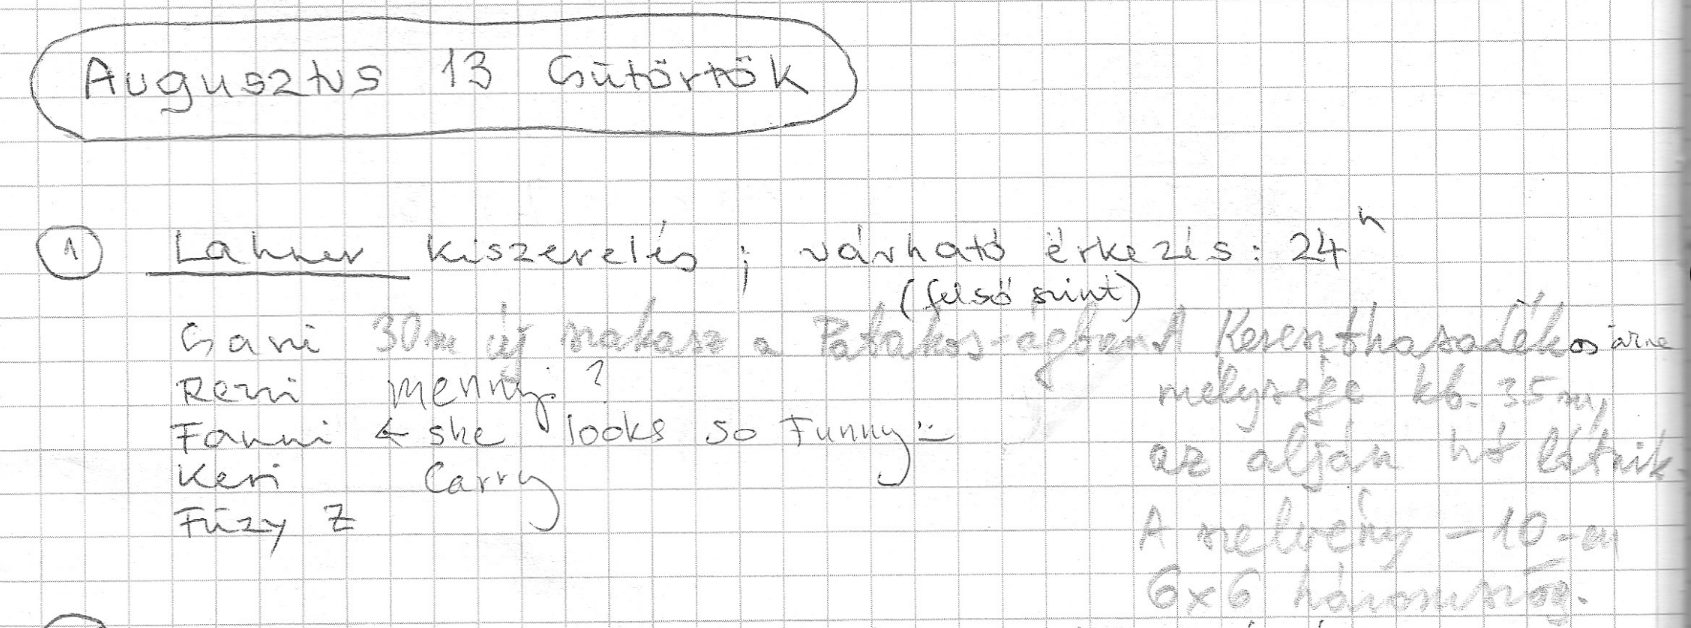 Augusztus 13 Csütörtök
① Lahner kiszerelés ; várható érkezés : 24h
(felső szint)
Gani 30m új szakasz a Patakos-ágban. A Keresnthasadék
Revi menny. ?
mélysége kb. 35 m,
Fanni ← she looks so Funny
az alján hó látszik.
Keri Carry
Fúzy Z
A szelvény -10-en
6x6 háromszög.